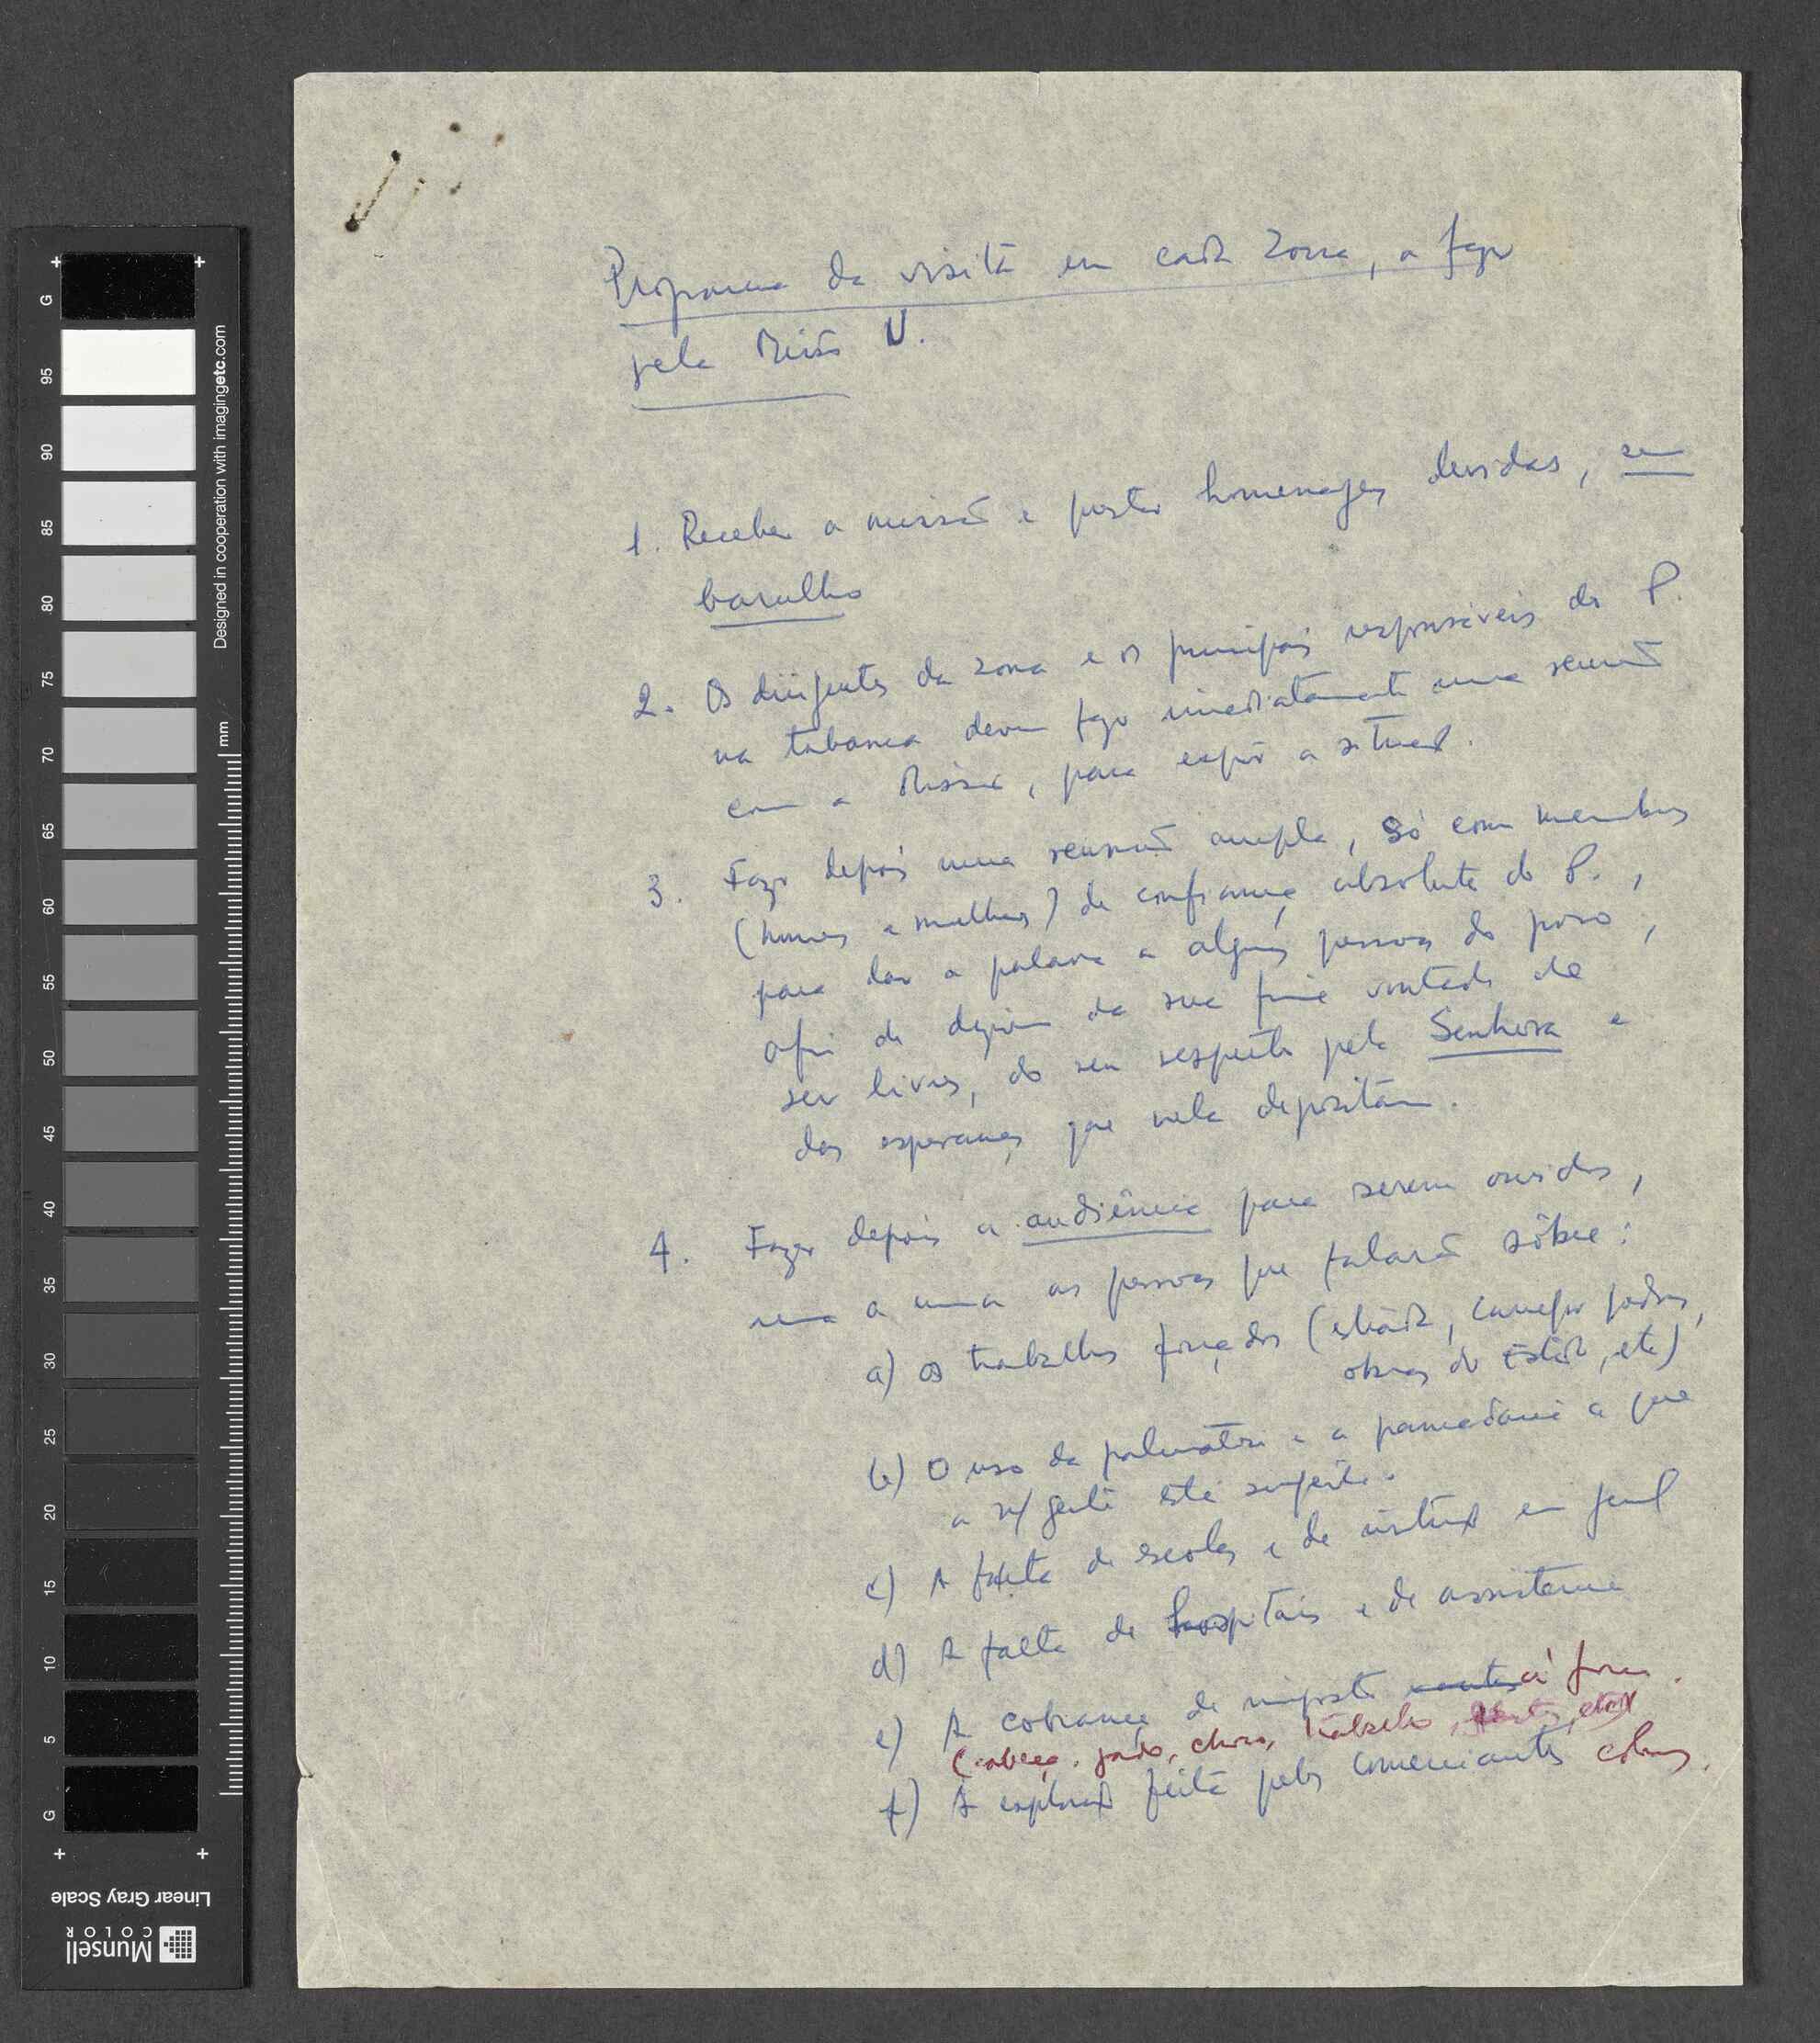 Programa da visita em cada zona, a fazer
pela Missão U.
1. Receber a missão e prestar homenagens devidas, sem
barulho
2. Os dirigentes da zona e os principais responsáveis do P.
na tabanca devem fazer imediatamente uma reunião
com a Missão, para expôr a situação.
3. Fazer depois uma reunião ampla, só com membros
(homens e mulheres) de confiança absoluta do P.,
para dar a palavra a algumas pessoas do povo,
afim de dizerem da sua firme vontade de
ser livres, do seu respeito pela Senhora e
das esperanças que nela depositam.
4. Fazer depois a audiência para serem ouvidas,
uma a uma as pessoas que falarão sôbre:
a) os trabalhos forçados (estrada, campo
obras do Estado, etc)
b) O uso da palmatória e a pancadaria a que
a n/ gente está sujeita.
c) A falta de escolas e de instrução em geral
d) A falta de hospitais e de assistência
e) A cobrança de imposto à força.
(cabeça, gado, choro, trabalho, etc)
f) A exploração feita pelos comerciantes colons.
G 95 90 85 80 75 70 65 60 55 50 45 40 35 30 25 20 15 10 5 G
mm
Designed in cooperation with imagingetc.com
Linear Gray Scale
Munsell
COLOR